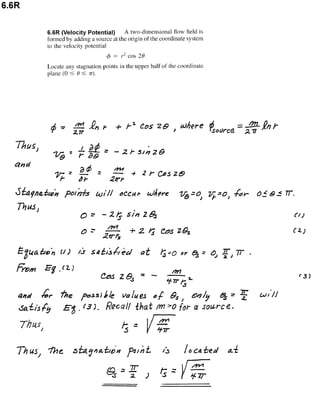 6.6R
6.6R (Velocity Potential) A two-dimensional flow field is
formed by adding a source at the origin of the coordinate system
to the velocity potential
ϕ = r² cos 2θ
Locate any stagnation points in the upper half of the coordinate
plane (0 ≤ θ ≤ π).
ϕ = m/2π ln r + r² cos 2θ , where ϕ_source = m/2π ln r
Thus,
v_θ = 1/r ∂ϕ/∂θ = - 2r sin 2θ
and
v_r = ∂ϕ/∂r = m/2πr + 2r cos 2θ
Stagnation points will occur where v_θ=0, v_r=0, for 0≤θ≤π.
Thus,
0 = - 2r_s sin 2θ_s (1)
0 = m/2πr_s + 2 r_s cos 2θ_s (2)
Equation (1) is satisfied at r_s=0 or θ_s = 0, π/2, π .
From Eq.(2)
cos 2θ_s = - m/4πr_s² (3)
and for the possible values of θ_s , only θ_s = π/2 will
satisfy Eq.(3). Recall that m>0 for a source.
Thus, r_s = √m/4π
Thus, the stagnation point is located at
θ_s = π/2 ; r_s = √m/4π